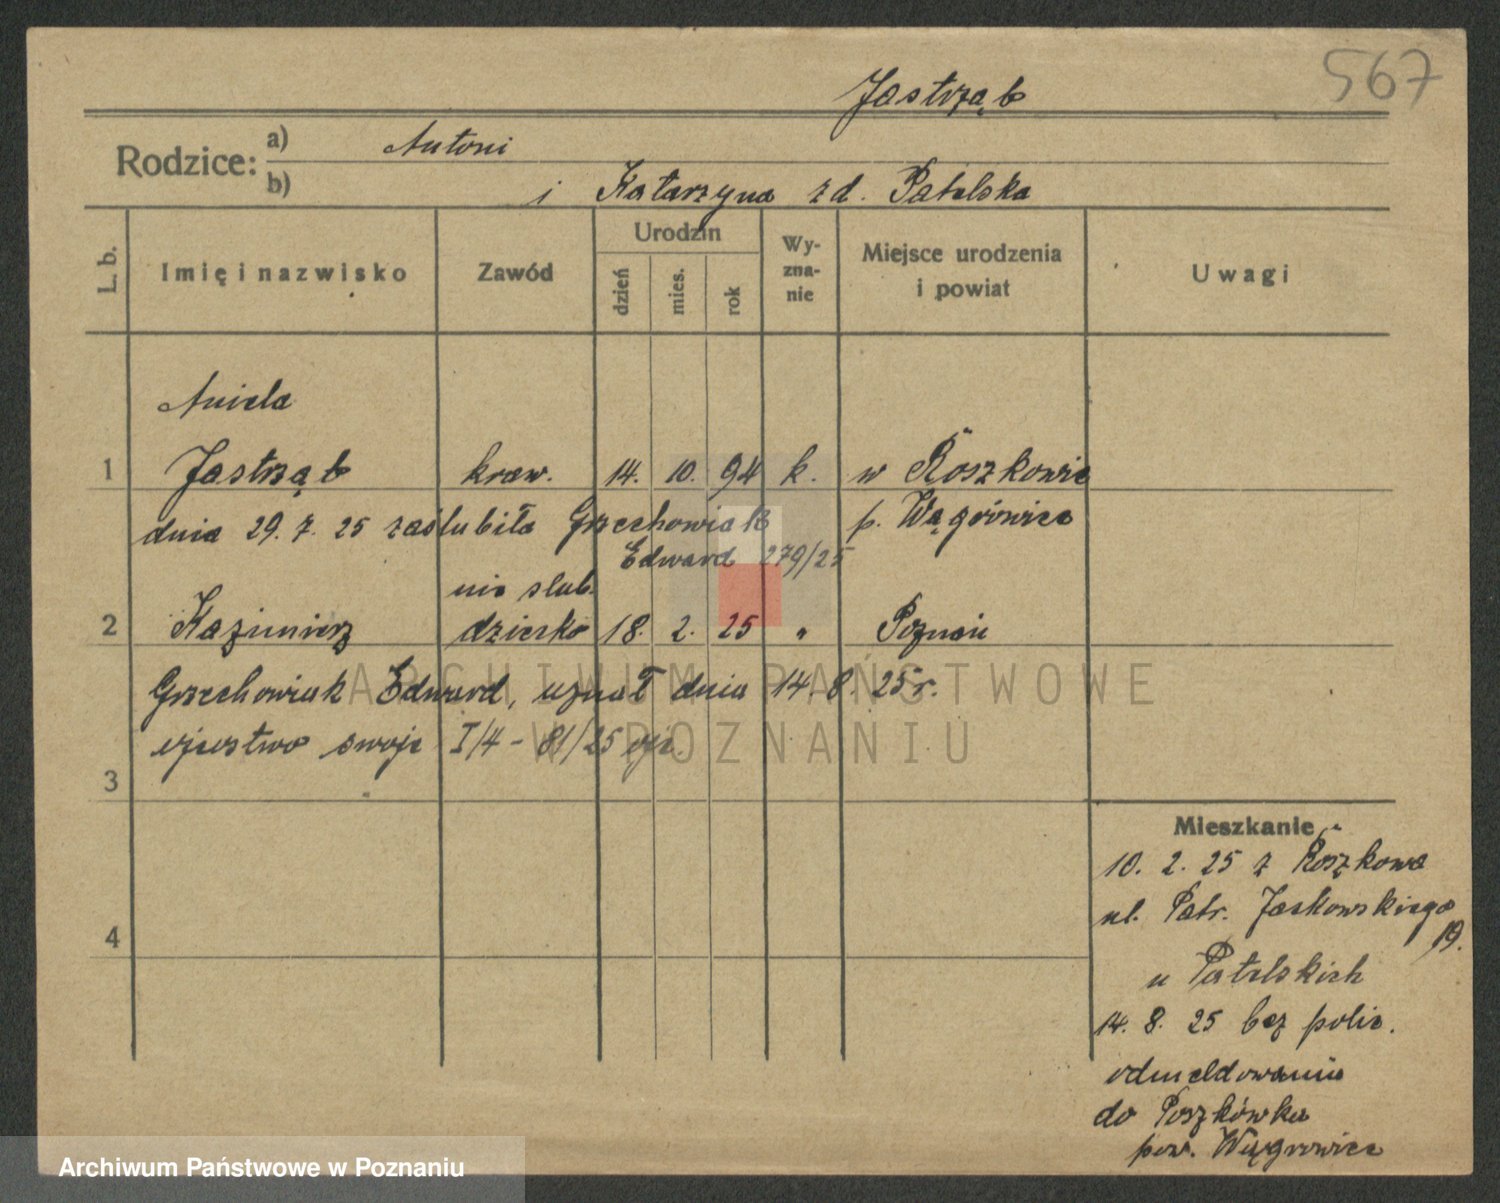 567
Jastrząb
Rodzice: a) Antoni
b) i Katarzyna zd. Patelska
L. b.
Imię i nazwisko
Zawód
Urodzin
dzień
mies.
rok
Wy-
zna-
nie
Miejsce urodzenia
i powiat
Uwagi
Aniela
1 Jastrząb kraw. 14. 10. 94 k. w Roszkowie
dnia 29. 7. 25 zaślubiła Grzechowiak p. Wągrówiec
Edward 279/25
nie ślub.
2 Kazimierz dziecko 18. 2. 25 " Poznań
Grzechowiak Edward, uznał dnia 14. 8. 25 r.
ojcostwo swoje I/4 - 81/25
3
4
Mieszkanie
10. 2. 25 z Roszkowa
ul. Patr. Jackowskiego
19.
u Patelskich
14. 8. 25 bez polic.
odmeldowania
do Roszkówka
pow. Wągrowiec
ARCHIWUM PAŃSTWOWE
W POZNANIU
Archiwum Państwowe w Poznaniu